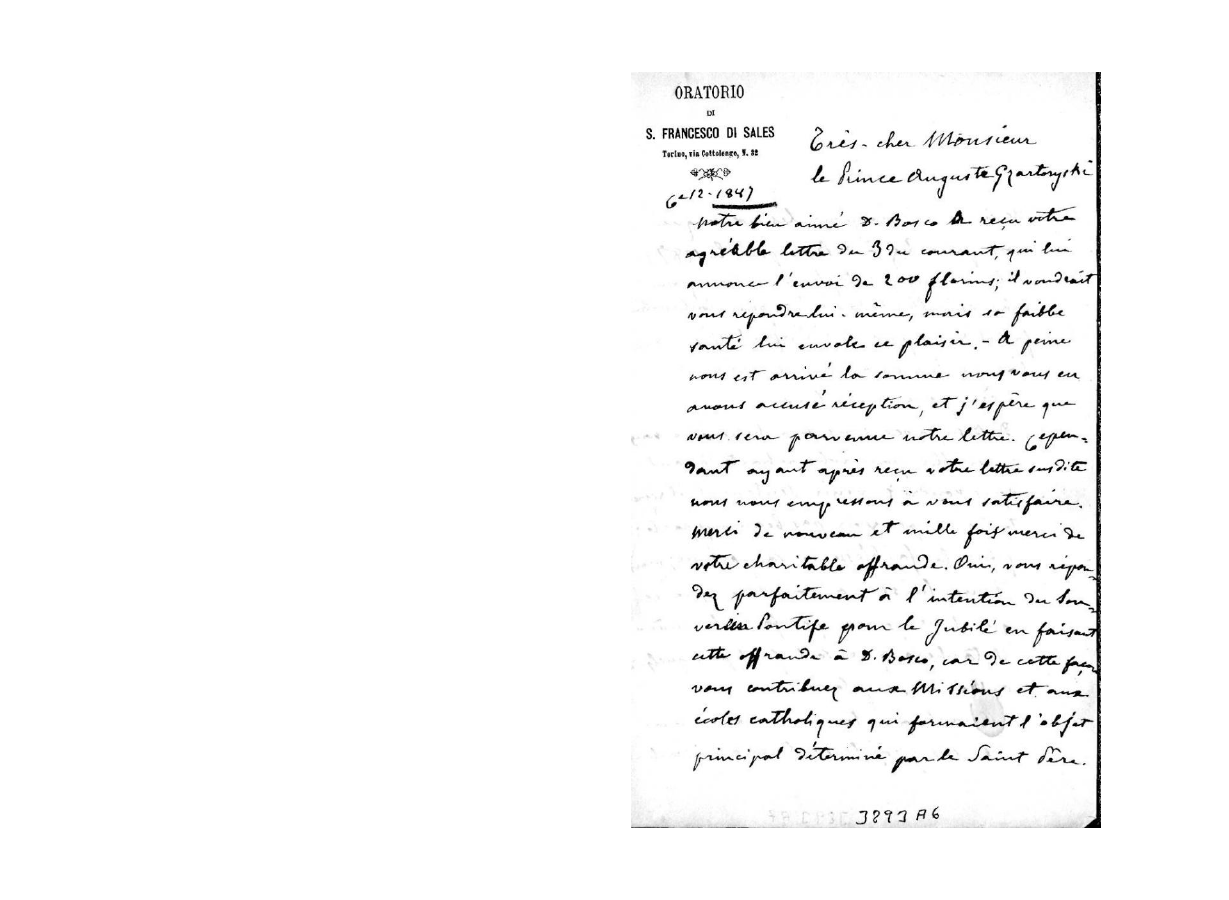 ORATORIO
DI
S. FRANCESCO DI SALES
Torino, via Cottolengo, N. 32
6-12-1887
Très-cher Monsieur
le Prince Auguste Czartoryski
Notre bien aimé D. Bosco a reçu votre
agréable lettre du 3 du courant, qui lui
annonce l'envoi de 200 florins; il voudrait
vous répondre lui-même, mais sa faible
santé lui envole ce plaisir. - A peine
nous est arrivé la somme nous vous en
avons accusé réception, et j'espère que
vous sera parvenue notre lettre. Cepen-
dant ayant après reçu votre lettre susdite
nous nous empressons à vous satisfaire.
Merci de nouveau et mille fois merci de
votre charitable offrande. Oui, vous répon-
dez parfaitement à l'intention du Sou-
verain Pontife pour le Jubilé en faisant
cette offrande à D. Bosco, car de cette façon
vous contribuez aux Missions et aux
écoles catholiques qui formaient l'objet
principal déterminé par le Saint Père.
3893 A6